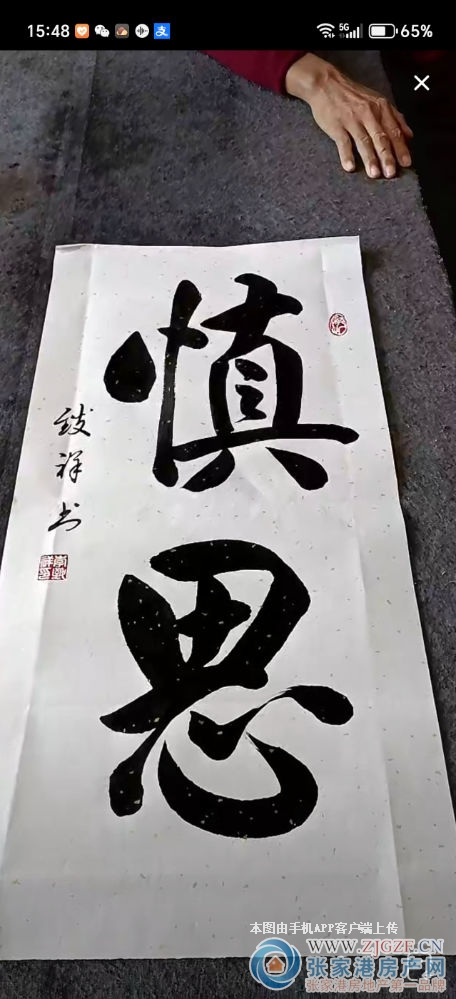 15:48
5G
65%
慎思
致祥书
本图由手机APP客户端上传
WWW.ZJGZF.CN
张家港房产网
张家港房地产第一品牌